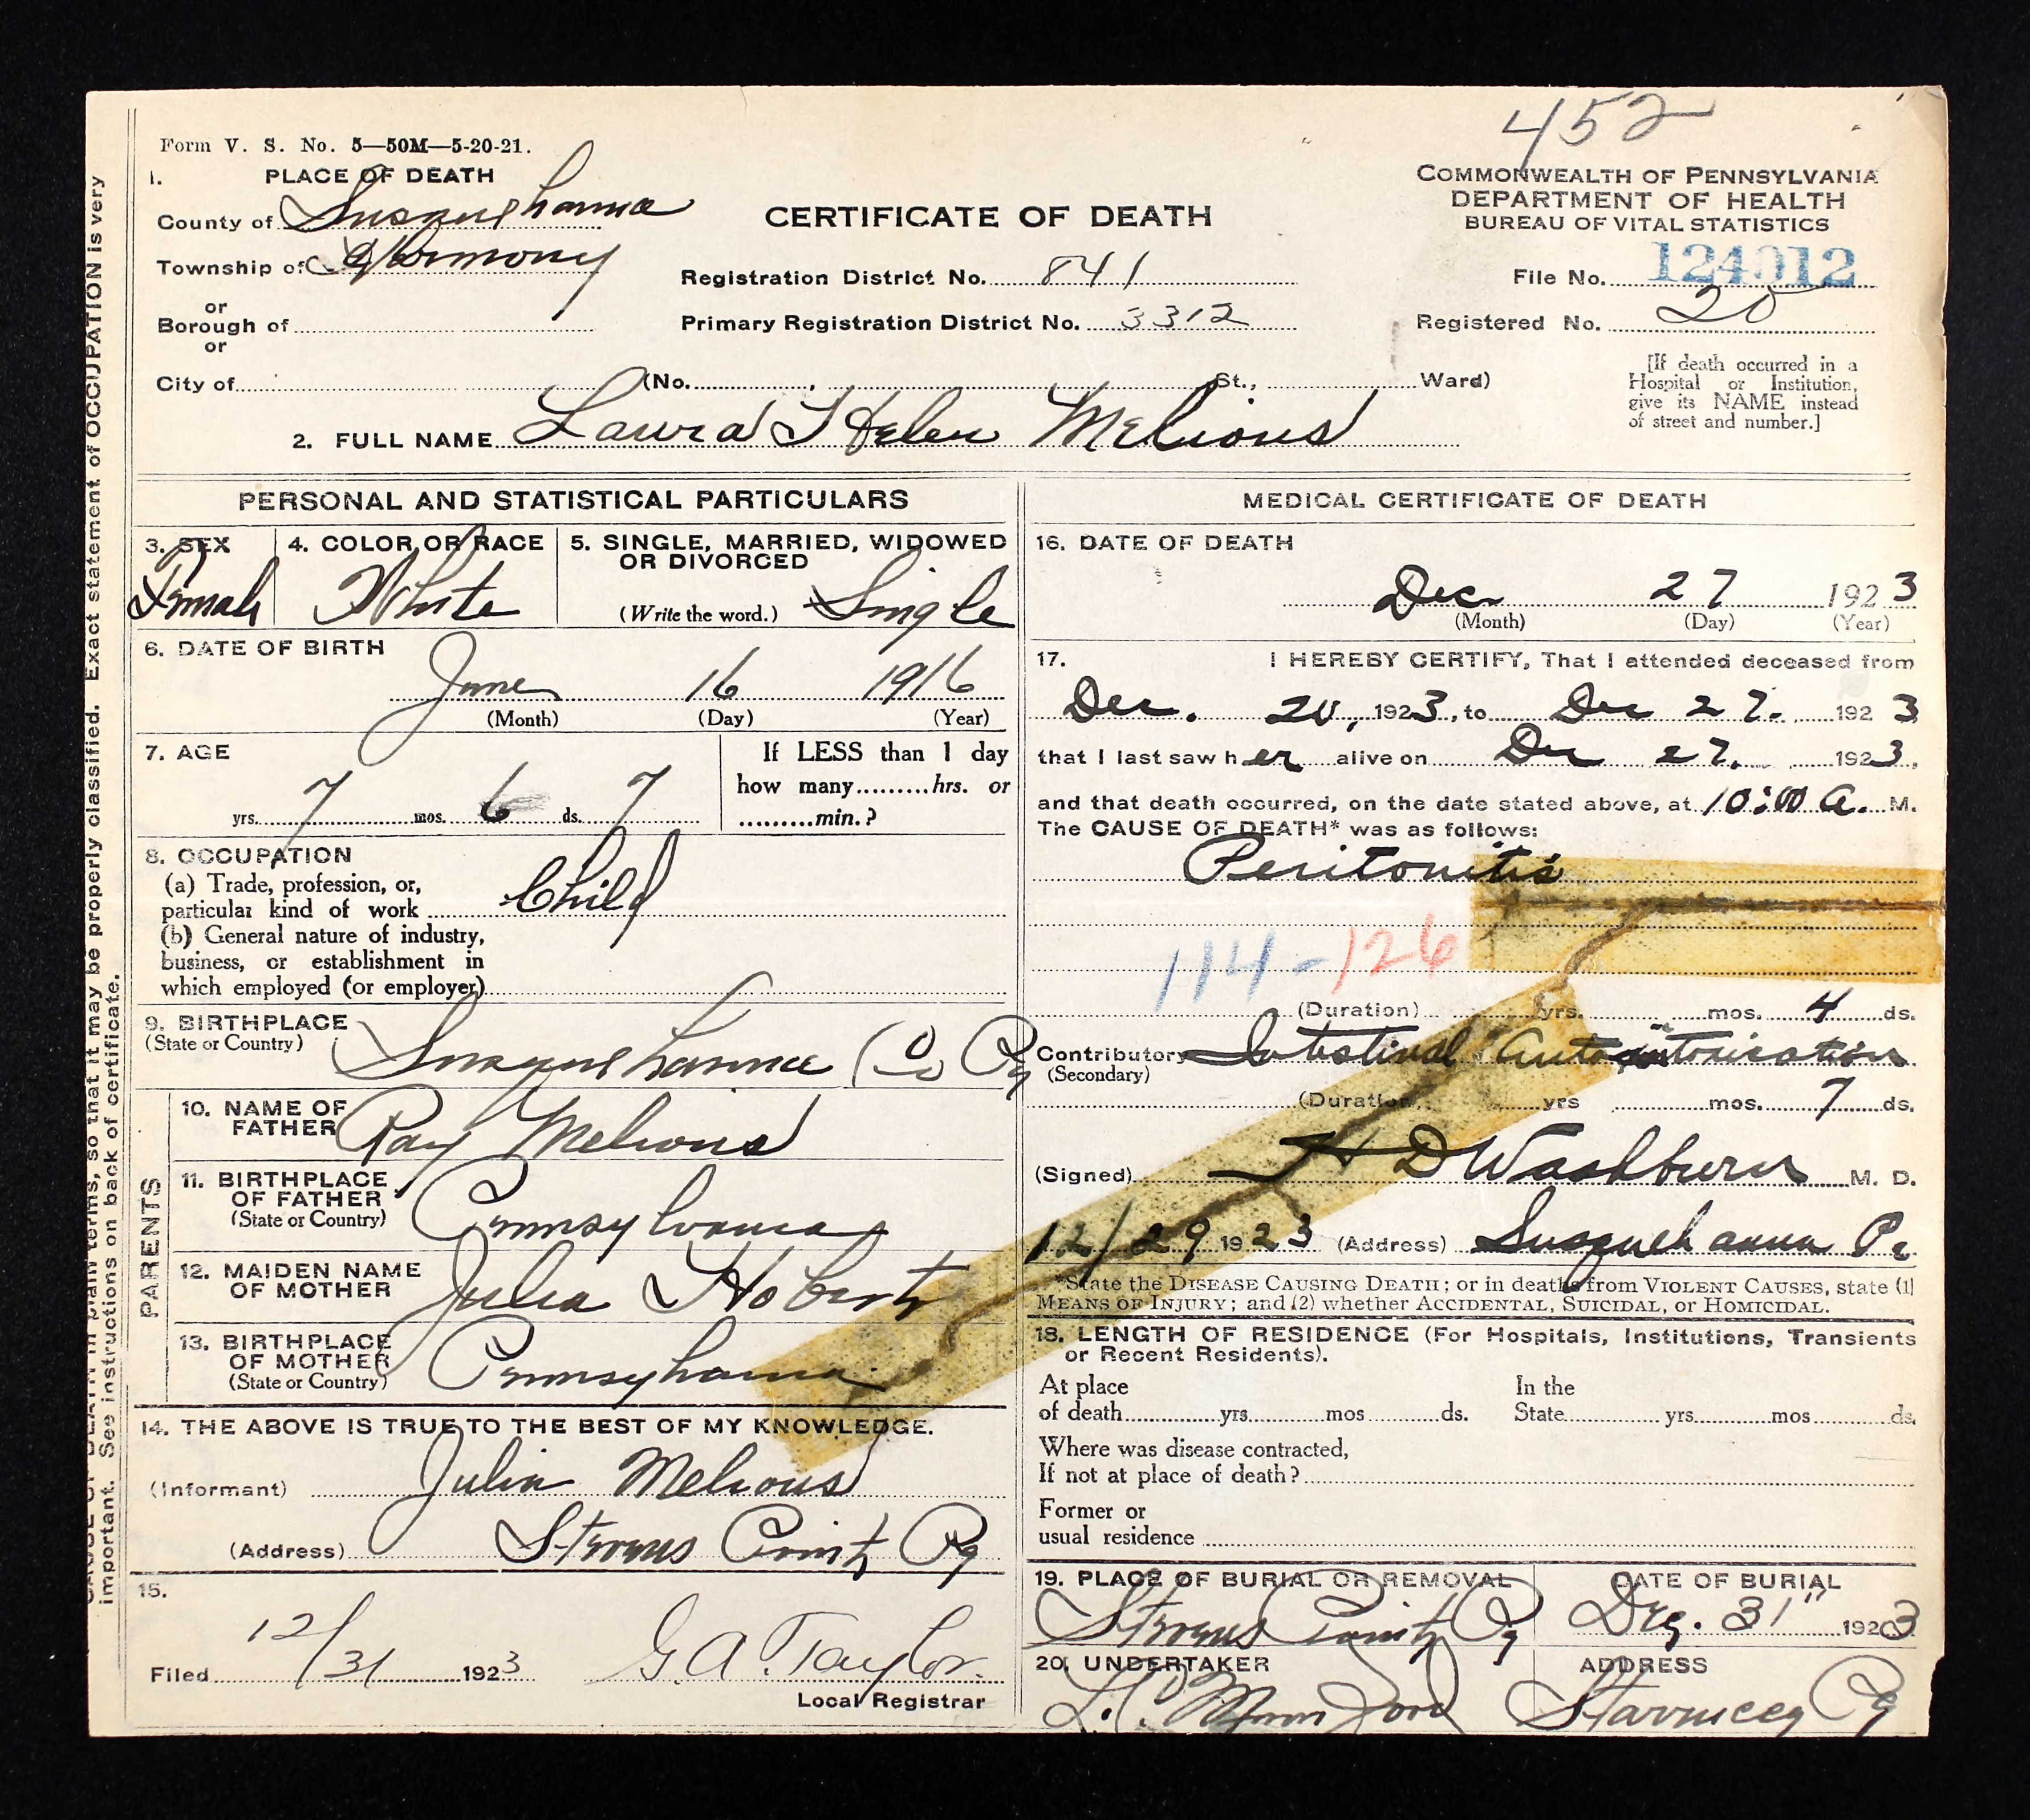 452
Form V. S. No. 5—50M—5-20-21.
1. PLACE OF DEATH
County of Susquehanna
Township of Harmony
or
Borough of
or
City of (No. , St., Ward)
CERTIFICATE OF DEATH
Registration District No. 841
Primary Registration District No. 3312
COMMONWEALTH OF PENNSYLVANIA
DEPARTMENT OF HEALTH
BUREAU OF VITAL STATISTICS
File No. 124012
Registered No. 20
[If death occurred in a
Hospital or Institution,
give its NAME instead
of street and number.]
2. FULL NAME Laura Helen Melious
PERSONAL AND STATISTICAL PARTICULARS
3. SEX Female
4. COLOR OR RACE White
5. SINGLE, MARRIED, WIDOWED
OR DIVORCED
(Write the word.) Single
6. DATE OF BIRTH
June 16 1916
(Month) (Day) (Year)
7. AGE
7 yrs. 6 mos. 7 ds.
If LESS than 1 day
how many hrs. or
min.?
8. OCCUPATION
(a) Trade, profession, or,
particular kind of work Child
(b) General nature of industry,
business, or establishment in
which employed (or employer)
9. BIRTHPLACE
(State or Country) Susquehanna Co Pa
PARENTS
10. NAME OF
FATHER Ray Melious
11. BIRTHPLACE
OF FATHER
(State or Country) Pennsylvania
12. MAIDEN NAME
OF MOTHER Julia Hobert
13. BIRTHPLACE
OF MOTHER
(State or Country) Pennsylvania
14. THE ABOVE IS TRUE TO THE BEST OF MY KNOWLEDGE.
(Informant) Julia Melious
(Address) Stevens Point Pa
15.
Filed 12/31 1923 G A. Taylor.
Local Registrar
MEDICAL CERTIFICATE OF DEATH
16. DATE OF DEATH
Dec 27 1923
(Month) (Day) (Year)
17. I HEREBY CERTIFY, That I attended deceased from
Dec. 20, 1923, to Dec 27. 1923
that I last saw her alive on Dec 27. 1923,
and that death occurred, on the date stated above, at 10:00 A. M.
The CAUSE OF DEATH* was as follows:
Peritonitis
114-126
(Duration) yrs. mos. 4 ds.
Contributory Intestinal Autointoxication
(Secondary)
(Duration) yrs mos. 7 ds.
(Signed) H D Washburn M. D.
12/29 1923 (Address) Susquehanna Pa
*State the DISEASE CAUSING DEATH; or in deaths from VIOLENT CAUSES, state (1)
MEANS OF INJURY; and (2) whether ACCIDENTAL, SUICIDAL, or HOMICIDAL.
18. LENGTH OF RESIDENCE (For Hospitals, Institutions, Transients
or Recent Residents).
At place In the
of death yrs mos ds. State yrs mos ds.
Where was disease contracted,
If not at place of death?
Former or
usual residence
19. PLACE OF BURIAL OR REMOVAL
Stevens Point Pa
DATE OF BURIAL
Dec. 31" 1923
20. UNDERTAKER
ADDRESS
Starrucca Pa
important. See instructions on back of certificate.
CAUSE OF DEATH in plain terms, so that it may be properly classified. Exact statement of OCCUPATION is very